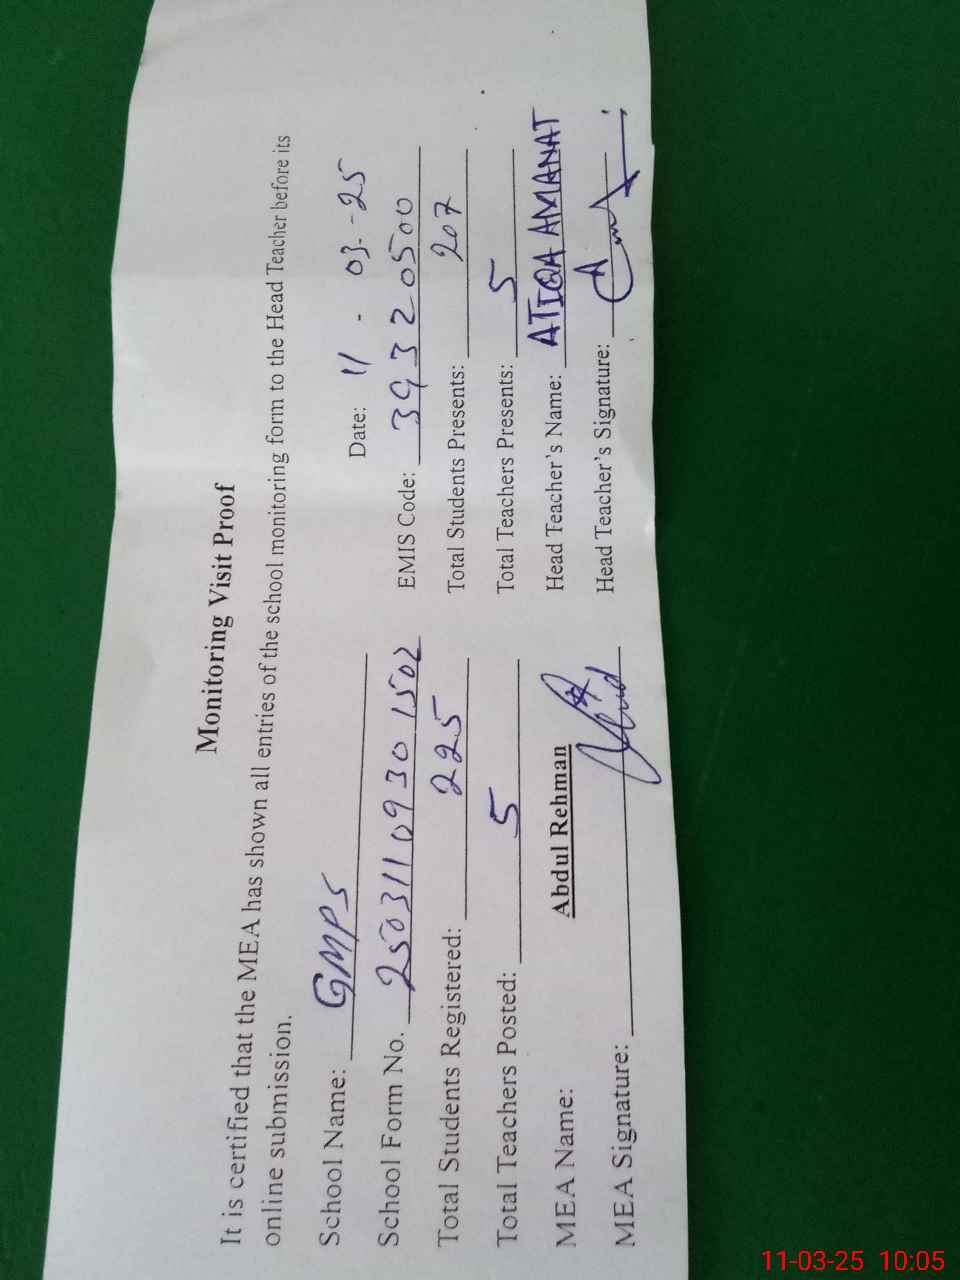 Monitoring Visit Proof
It is certified that the MEA has shown all entries of the school monitoring form to the Head Teacher before its
online submission.
School Name: GMPS Date: 11 - 03 - 25
School Form No. 25031109301502 EMIS Code: 39320500
Total Students Registered: 225 Total Students Presents: 207
Total Teachers Posted: 5 Total Teachers Presents: 5
MEA Name: Abdul Rehman Head Teacher's Name: ATIQA AMANAT
MEA Signature: Head Teacher's Signature:
11-03-25 10:05